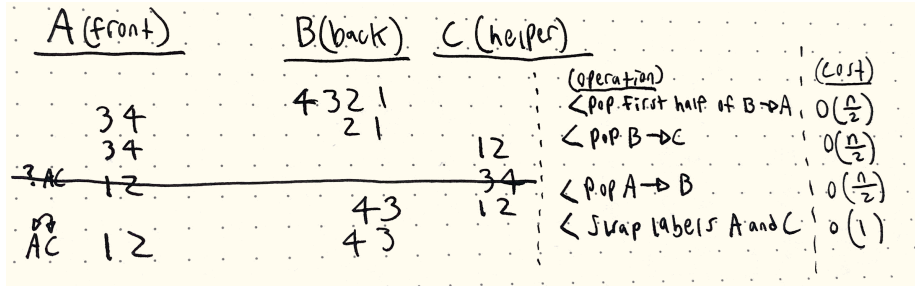 A (front) B (back) C (helper)
(operation) (cost)
4321 < pop first half of B → A O(n/2)
34 21
34 12 < pop B → C O(n/2)
12 34
43 12 < pop A → B O(n/2)
AC 12 43 < swap labels A and C O(1)